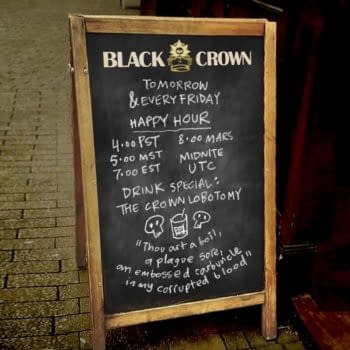 BLACK CROWN
TOMORROW
& EVERY FRIDAY
HAPPY HOUR
4:00 PST 8:00 MARS
5:00 MST MIDNITE
7:00 EST UTC
DRINK SPECIAL:
THE CROWN LOBOTOMY
"Thou art a boil,
a plague sore,
an embossed carbuncle
in my corrupted blood"